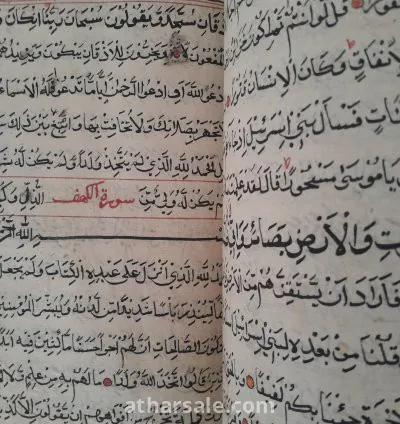 قُلْ لَوْ اَنْتُمْ تَمْلِكُونَ
الْاِنْفَاقِ وَكَانَ الْاِنْسَانُ قَتُورًا
فَسْأَلْ بَنِي اِسْرَائِيلَ اِذْ جَا
يَا مُوسٰى مَسْحُورًا قَالَ لَقَدْ عَلِمْتَ
وَالْاَرْضِ بَصَائِرَ
فَاَرَادَ اَنْ يَسْتَفِزَّهُمْ مِنَ
وَقُلْنَا مِنْ بَعْدِهِ لِبَنِي اِسْرَ
جِئْنَا بِكُمْ لَفِيفًا
ذْقَانِ سُجَّدًا وَيَقُولُونَ سُبْحَانَ رَبِّنَا اِنْ كَانَ وَ
لَمَفْعُولًا وَيَخِرُّونَ لِلْاَذْقَانِ يَبْكُونَ وَيَزِيدُهُمْ
ادْعُوا اللّٰهَ اَوِ ادْعُوا الرَّحْمٰنَ اَيًّا مَا تَدْعُوا فَلَهُ الْاَسْمَاءُ
تَجْهَرْ بِصَلَاتِكَ وَلَا تُخَافِتْ بِهَا وَابْتَغِ بَيْنَ ذٰلِكَ
الْحَمْدُ لِلّٰهِ الَّذِي لَمْ يَتَّخِذْ وَلَدًا وَلَمْ يَكُنْ لَهُ
يَكُنْ لَهُ وَلِيٌّ مِنَ سورة الكهف الذُّلِّ وَكَ
اللّٰهِ الرَّ
لِلّٰهِ الَّذِي اَنْزَلَ عَلٰى عَبْدِهِ الْكِتَابَ وَلَمْ يَجْعَلْ
لِيُنْذِرَ بَأْسًا شَدِيدًا مِنْ لَدُنْهُ وَيُبَشِّرَ الْمُؤْمِنِينَ
الصَّالِحَاتِ اَنَّ لَهُمْ اَجْرًا حَسَنًا مَاكِثِينَ فِيهِ اَبَدًا
قَالُوا اتَّخَذَ اللّٰهُ وَلَدًا مَا لَهُمْ بِهِ مِنْ عِلْمٍ وَلَا
اَفْوَاهِهِمْ اِنْ يَقُولُونَ اِلَّا كَذِبًا
atharsale.com